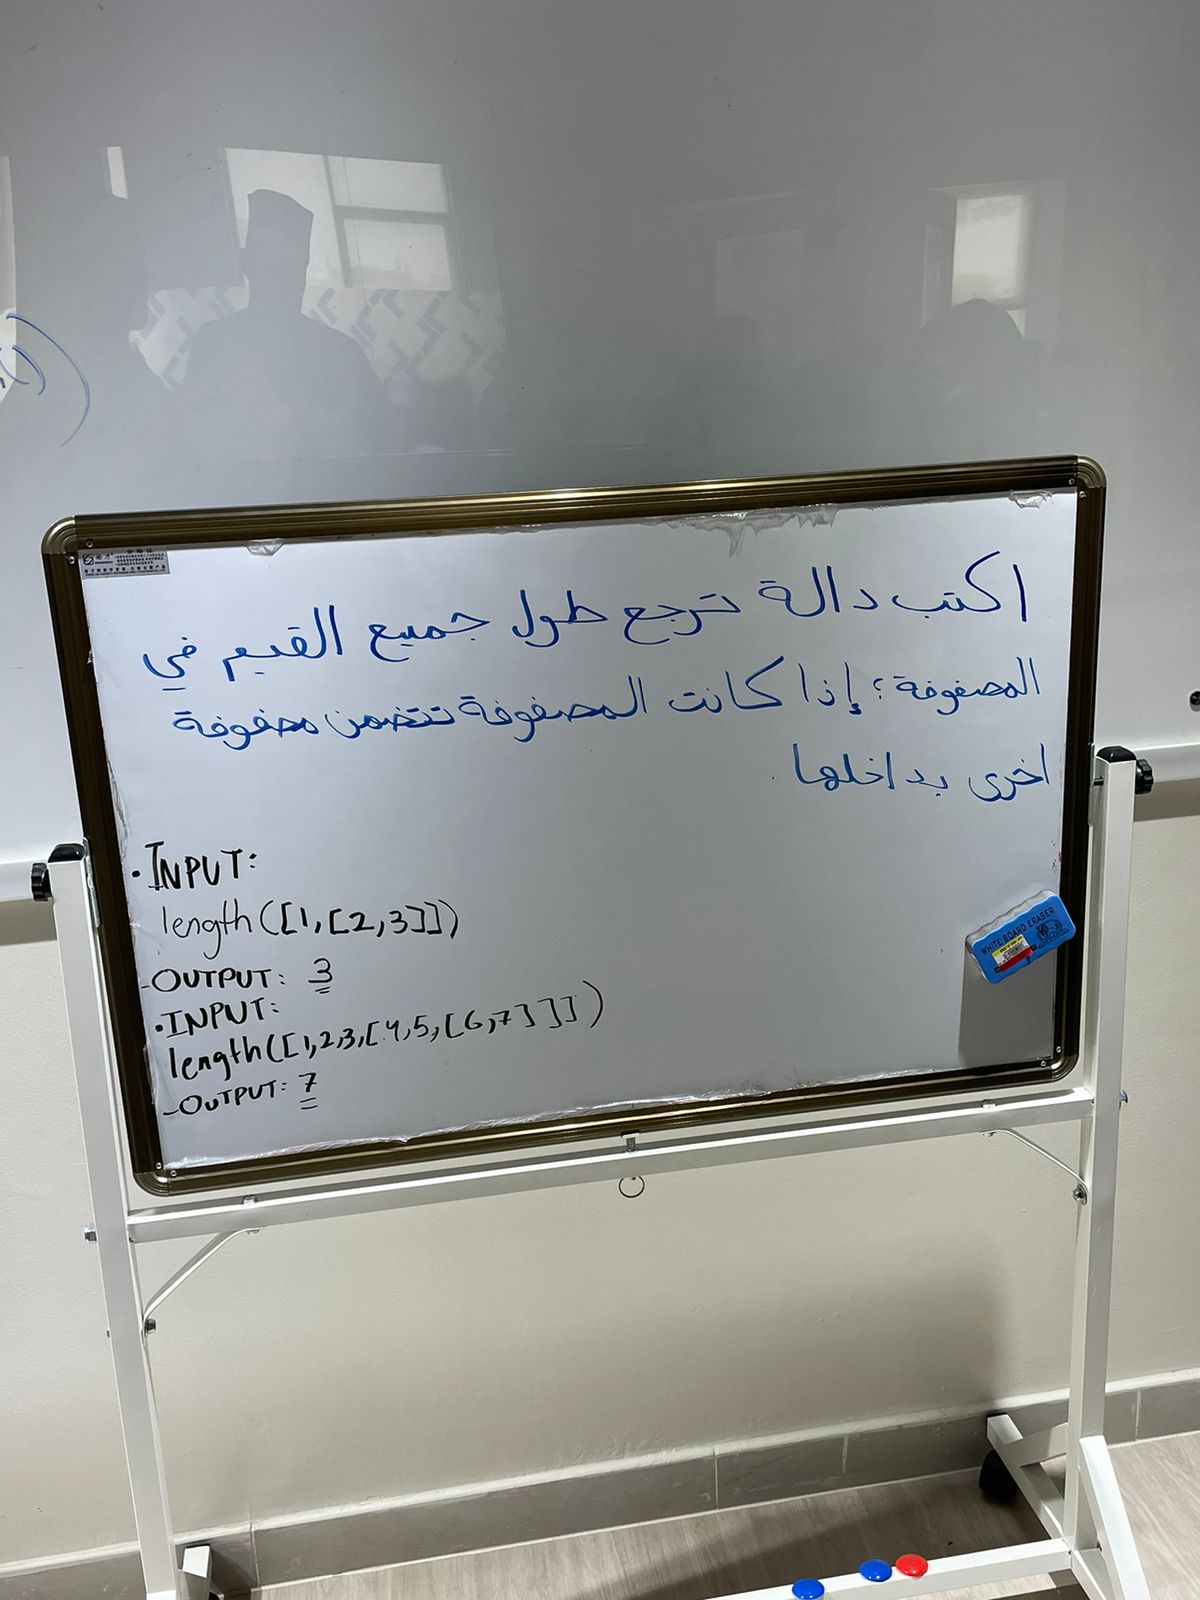 اكتب دالة ترجع طول جميع القيم في
المصفوفة؛ إذا كانت المصفوفة تتضمن مصفوفة
اخرى بداخلها
• INPUT:
length([1,[2,3]])
-OUTPUT: 3
• INPUT:
length([1,2,3,[4,5,[6,7]]])
-OUTPUT: 7
WHITE BOARD ERASER